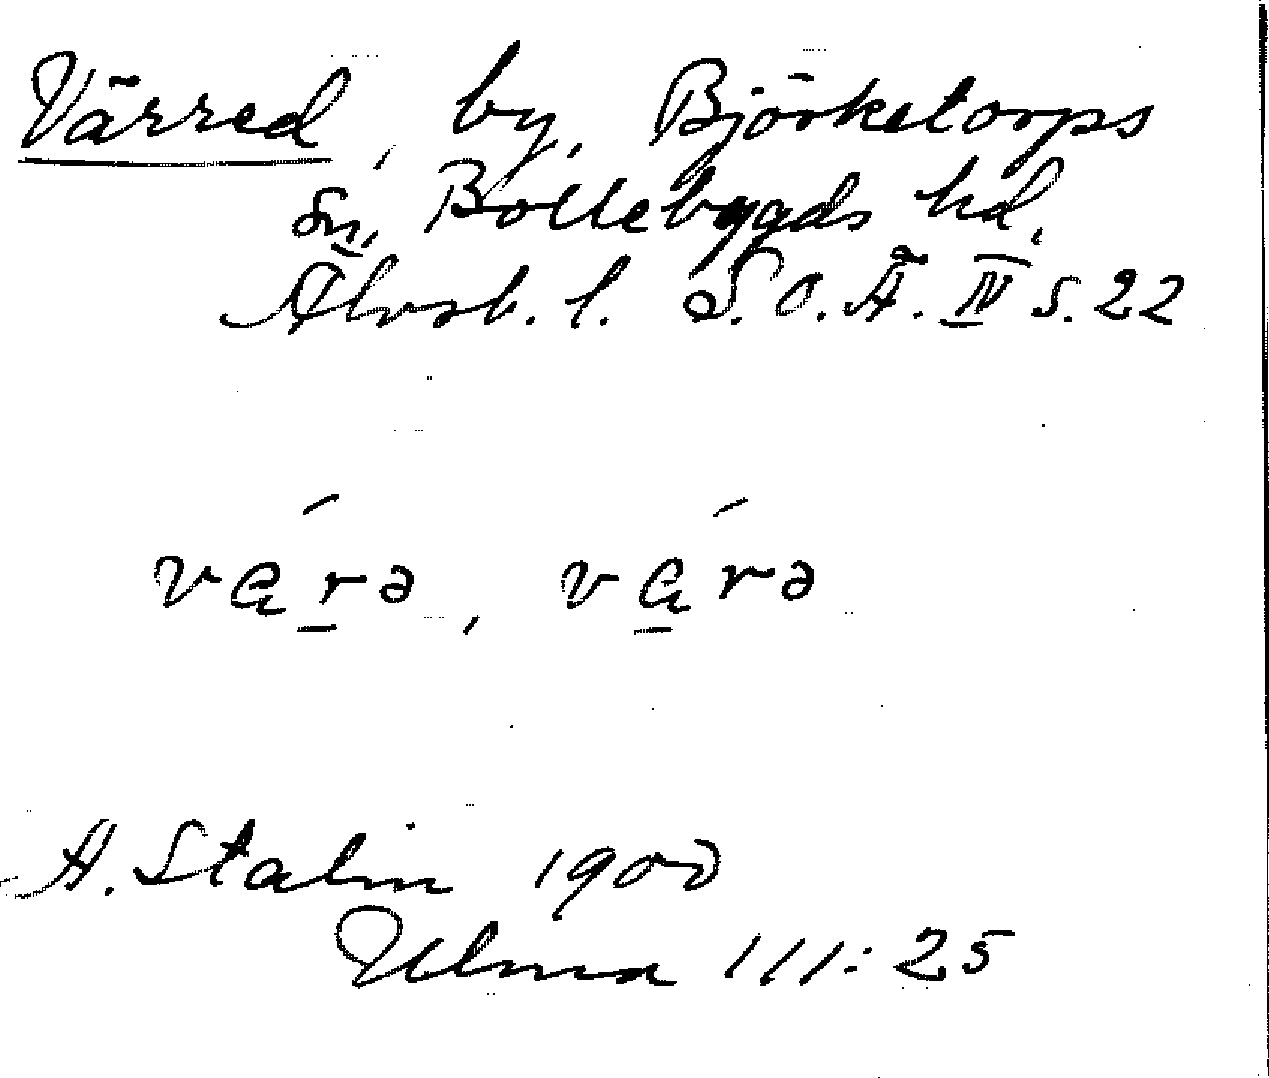 Värred, by, Björketorps
sn, Bollebygds hd,
Älvsb. l. S. O. Ä. IV s. 22
A. Stalin 1900
Ulma 111:25